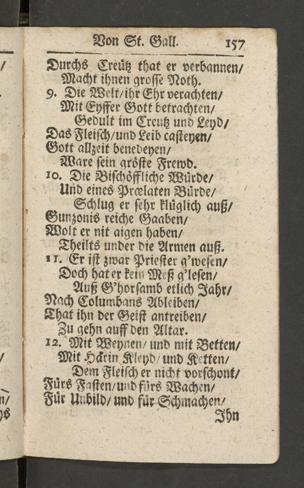 Von St. Gall. 157
Durchs Creütz that er verbannen/
Macht ihnen grosse Noth.
9. Die Welt/ ihr Ehr verachten/
Mit Eyffer Gott betrachten/
Gedult im Creutz und Leyd/
Das Fleisch/ und Leib casteyen/
Gott allzeit benedeyen/
Ware sein gröste Frewd.
10. Die Bischöffliche Würde/
Und eines Prælaten Bürde/
Schlug er sehr klüglich auß/
Gunzonis reiche Gaaben/
Wolt er nit aigen haben/
Theilts under die Armen auß.
11. Er ist zwar Priester g'wesen/
Doch hat er kein Meß g'lesen/
Auß G'horsamb etlich Jahr/
Nach Columbans Ableiben/
That ihn der Geist antreiben/
Zu gehn auff den Altar.
12. Mit Weynen/ und mit Betten/
Mit Härin Kleyd/ und Ketten/
Dem Fleisch er nicht vorschont/
Fürs Fasten/ und fürs Wachen/
Für Unbild/ und für Schmachen/
Ihn